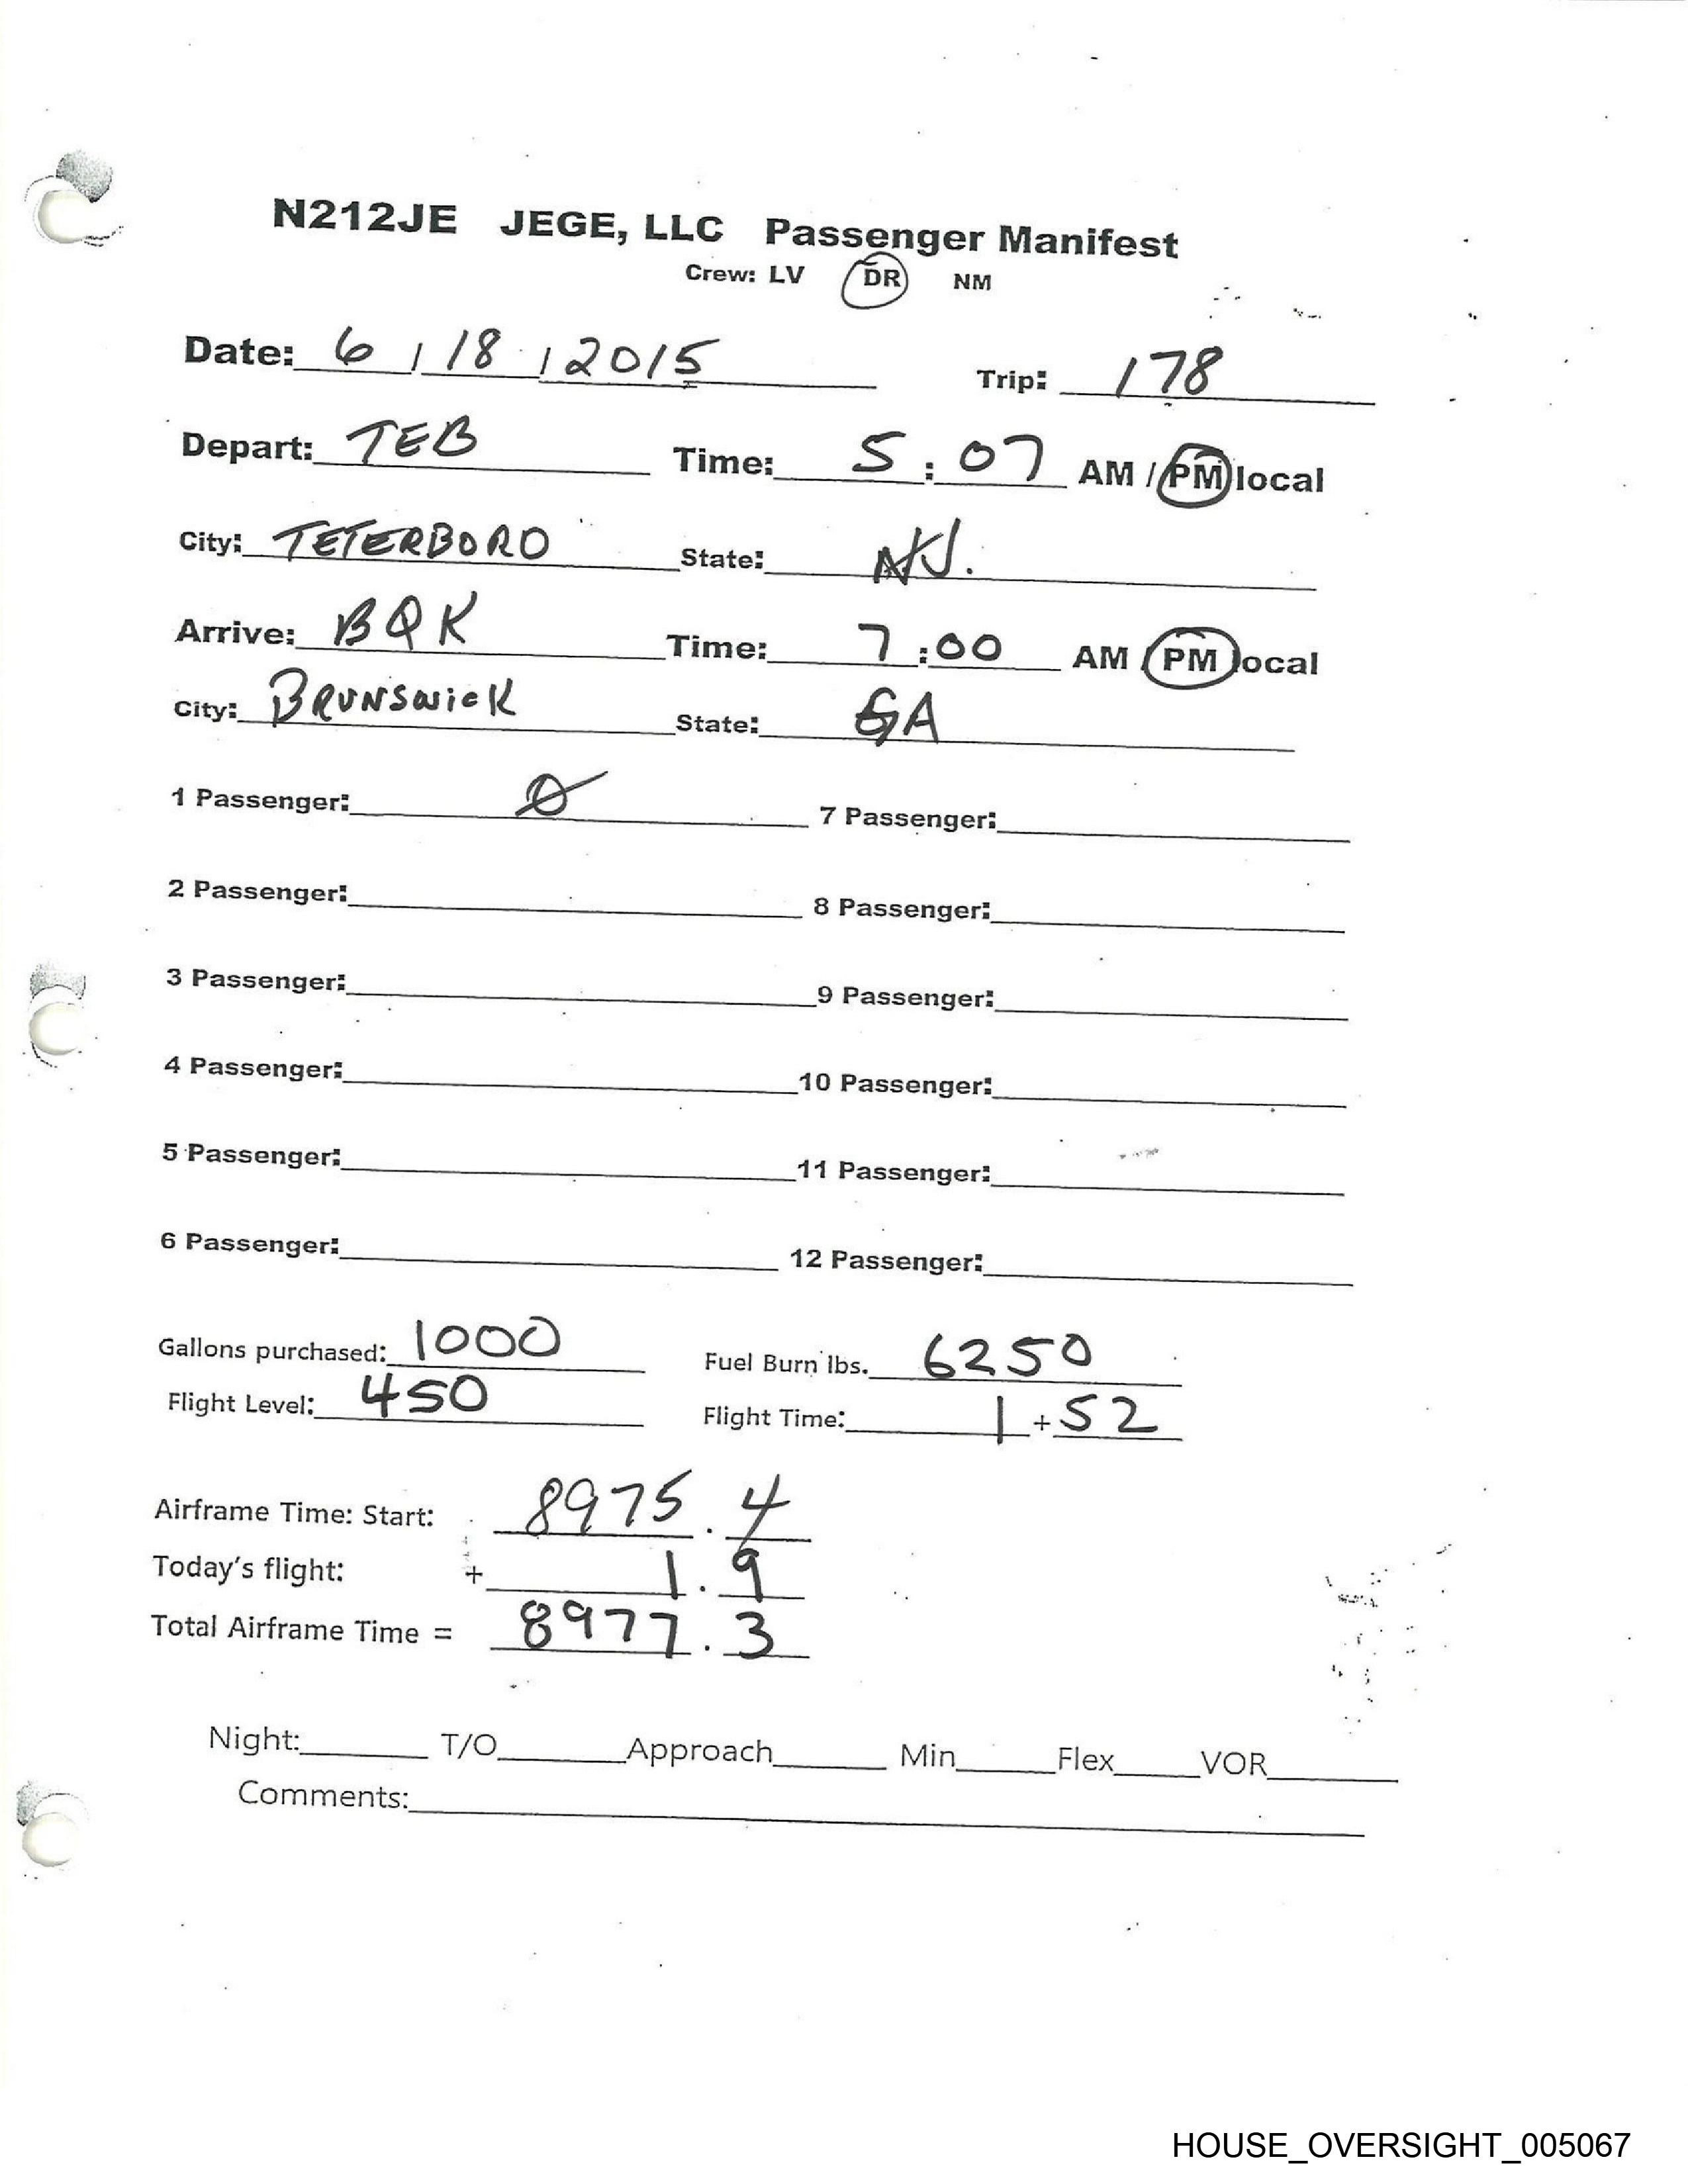 N212JE JEGE, LLC Passenger Manifest
Crew: LV DR NM
Date: 6 / 18 / 2015 Trip: 178
Depart: TEB Time: 5 : 07 AM / PM local
City: TETERBORO State: NJ.
Arrive: BQK Time: 7 : 00 AM / PM local
City: BRUNSWICK State: GA
1 Passenger: Ø 7 Passenger:
2 Passenger: 8 Passenger:
3 Passenger: 9 Passenger:
4 Passenger: 10 Passenger:
5 Passenger: 11 Passenger:
6 Passenger: 12 Passenger:
Gallons purchased: 1000 Fuel Burn lbs. 6250
Flight Level: 450 Flight Time: 1 + 52
Airframe Time: Start: 8975 . 4
Today's flight: + 1 . 9
Total Airframe Time = 8977 . 3
Night: T/O Approach Min Flex VOR
Comments:
HOUSE_OVERSIGHT_005067